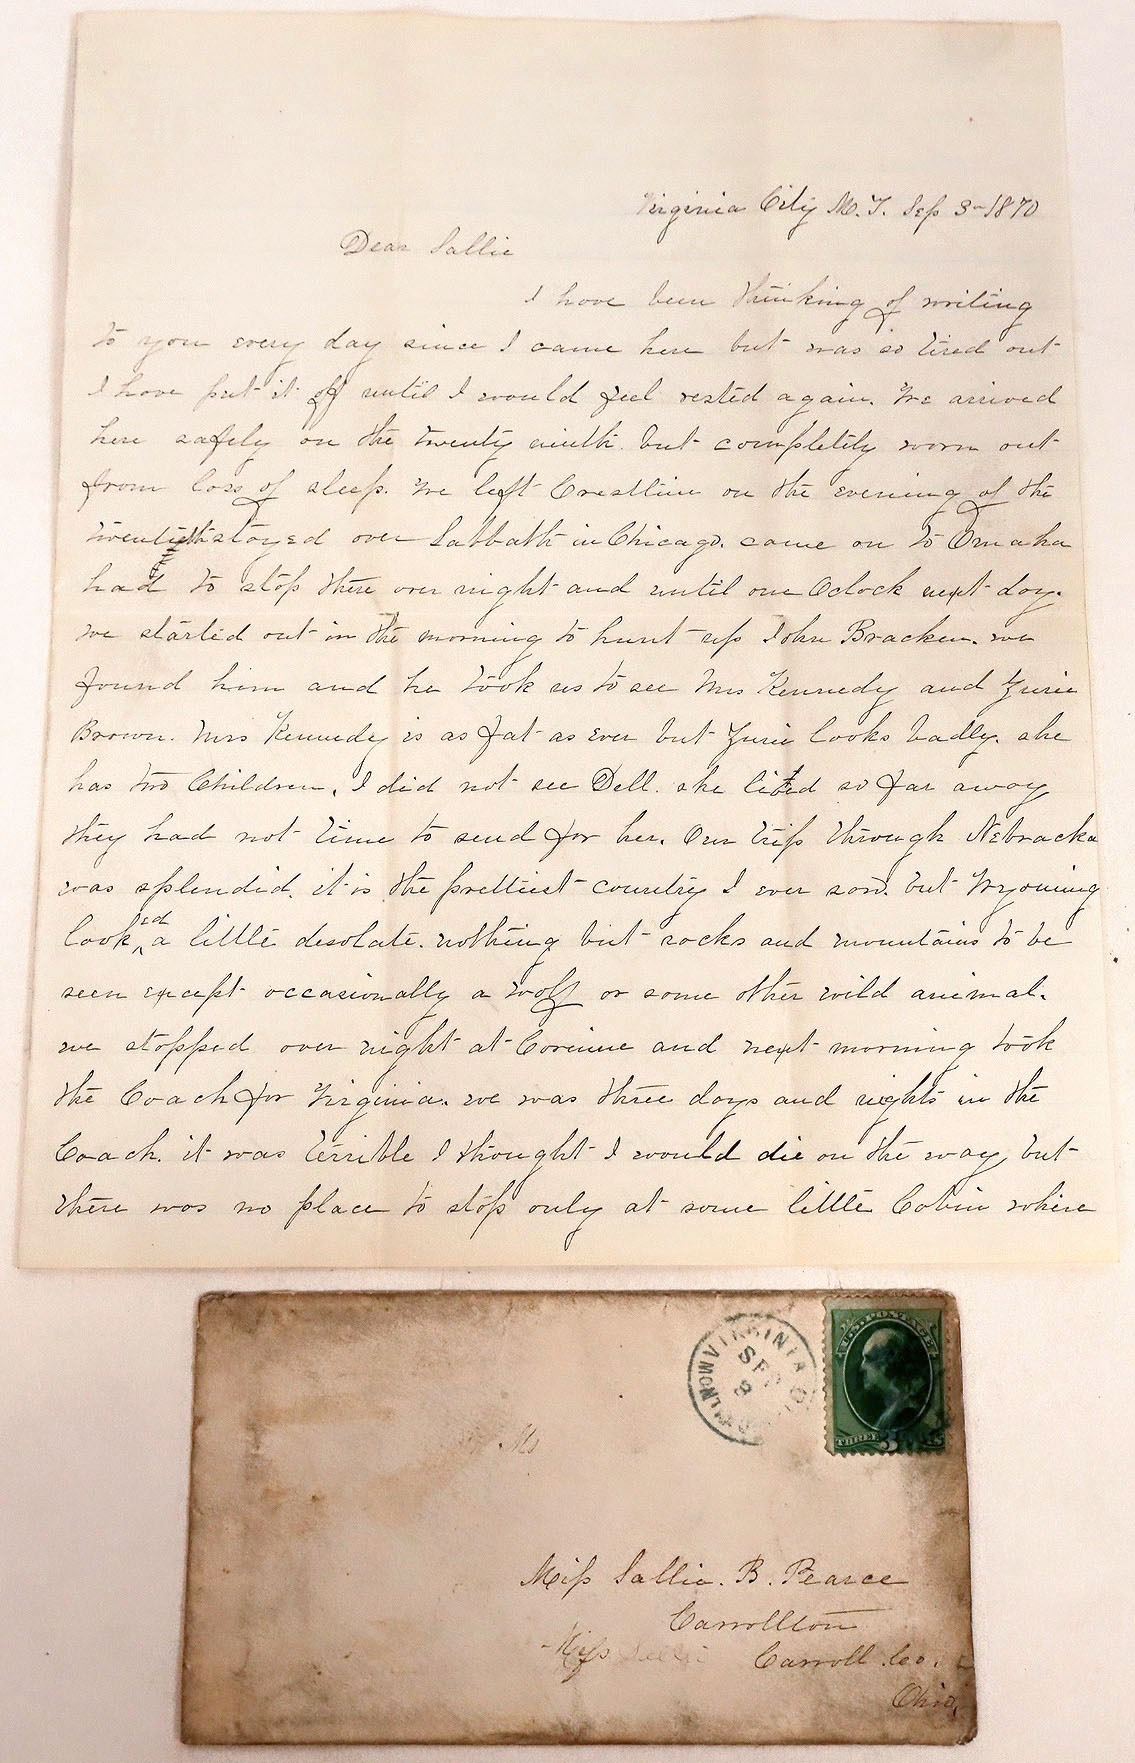 Virginia City M.T. Sep 3rd 1870
Dear Sallie
I have been thinking of writing
to you every day since I came here but was so tired out
I have put it off until I would feel rested again. We arrived
here safely on the twenty ninth. but completely worn out
from loss of sleep. we left Crestline on the evening of the
twentieth stayed over Sabbath in Chicago. came on to Omaha
had to stop there over night and until one Oclock next day.
we started out in the morning to hunt up John Bracken. we
found him and he took us to see Mrs Kennedy and
Brown. Mrs Kennedy is as fat as ever but looks badly. she
has two Children. I did not see Dell. she lived so far away
they had not time to send for her. Our trip through Nebracka
was splendid. it is the prettiest country I ever saw. but Wyoming
looked a little desolate. nothing but rocks and mountains to be
seen except occasionally a wolf or some other wild animal.
we stopped over night at Corinne and next morning took
the Coach for Virginia. we was three days and nights in the
Coach. it was terrible I thought I would die on the way but
there was no place to stop only at some little Cabin where
VIRGINIA CI
SEP
8
MONT
U.S. POSTAGE
3
Ms
Miss Sallie. B. Pearce
Carrollton
Miss Sallie
Carroll Co.
Ohio,